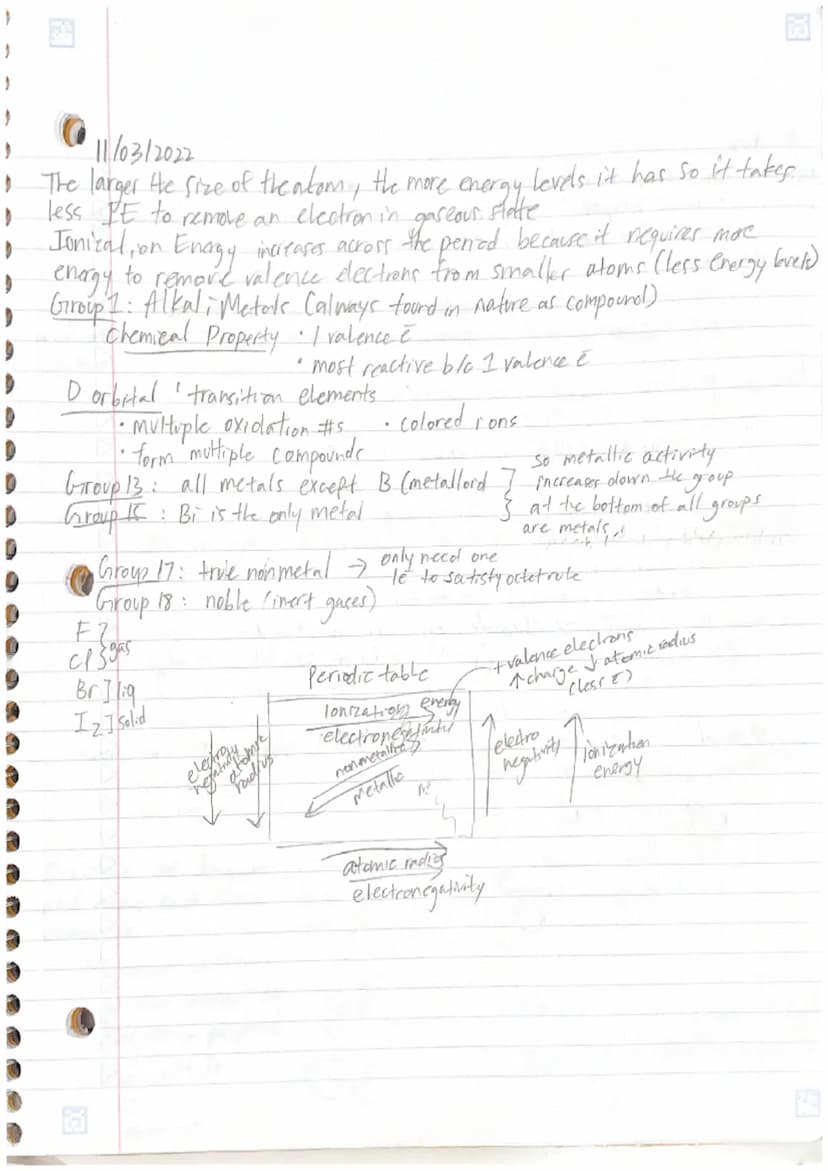 11/03/2022
The larger the size of the atom, the more energy levels it has so it takes
less IE to remove an electron in gaseous state
Ionization Energy increases across the period because it requires more
energy to remove valence electrons from smaller atoms (less energy levels)
Group 1: Alkali Metals (always found in nature as compound)
Chemical Property • 1 valence ē
• most reactive b/c 1 valence ē
D orbital ' transition elements
• multiple oxidation #s • colored ions
• form multiple compounds
Group 13: all metals except B (metalloid
Group 15: Bi is the only metal
so metallic activity
increases down the group
at the bottom of all groups
are metals
Group 17: true nonmetal → only need one
1ē to satisfy octet rule
Group 18: noble (inert gases)
F
Cl } gas
Br ] liq
I2 ] solid
Periodic table
+ valence electrons
↑ charge ↓ atomic radius
(less ē)
ionization energy
electronegativity
nonmetallic
metallic
electro
negativity
atomic
radius
electro
negativity
ionization
energy
atomic radius
electronegativity